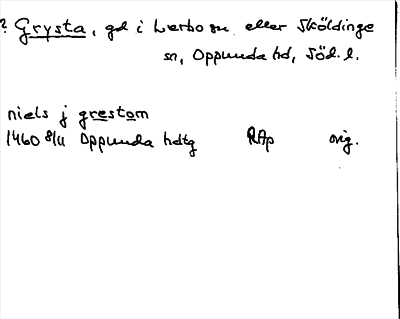 ? Grysta, gd i Lerbo sn eller Sköldinge
sn, Oppunda hd, Söd. l.
niels j grestom
1460 8/11 Oppunda hdtg RAp orig.